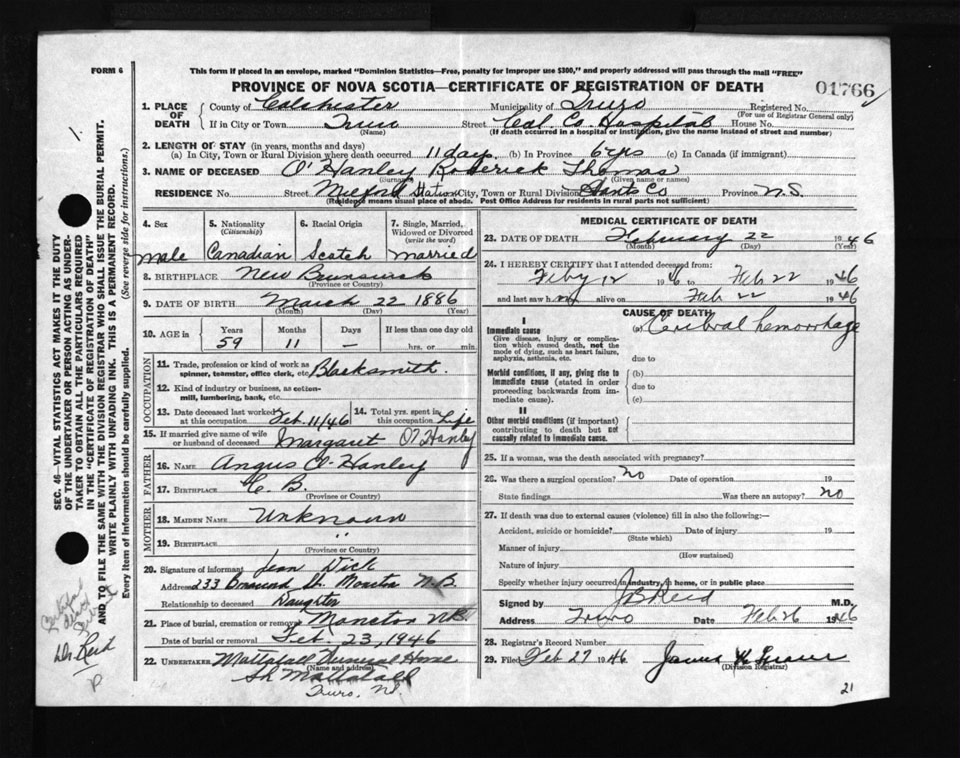 FORM 6
This form if placed in an envelope, marked "Dominion Statistics—Free, penalty for improper use $300," and properly addressed will pass through the mail "FREE"
PROVINCE OF NOVA SCOTIA—CERTIFICATE OF REGISTRATION OF DEATH
01766
1. PLACE OF DEATH
County of Colchester Municipality of Truro Registered No.
(For use of Registrar General only)
If in City or Town Truro Street Col. Co. Hospital House No.
(Name) (If death occurred in a hospital or institution, give the name instead of street and number)
2. LENGTH OF STAY (in years, months and days)
(a) In City, Town or Rural Division where death occurred 11 day. (b) In Province 6 yrs (c) In Canada (if immigrant)
3. NAME OF DECEASED O'Hanley Roderick Thomas
(Surname) (Given name or names)
RESIDENCE No. Street Milford Station City, Town or Rural Division Hants Co Province N.S.
(Residence means usual place of abode. Post Office Address for residents in rural parts not sufficient)
4. Sex
5. Nationality (Citizenship)
6. Racial Origin
7. Single, Married, Widowed or Divorced (write the word)
male Canadian Scotch married
8. BIRTHPLACE New Brunswick
(Province or Country)
9. DATE OF BIRTH March 22 1886
(Month) (Day) (Year)
10. AGE in Years Months Days If less than one day old
59 11 — hrs. or min.
OCCUPATION
11. Trade, profession or kind of work as spinner, teamster, office clerk, etc. Blacksmith.
12. Kind of industry or business, as cotton-mill, lumbering, bank, etc.
13. Date deceased last worked at this occupation Feb. 11/46
14. Total yrs. spent in this occupation Life
15. If married give name of wife or husband of deceased Margaret O'Hanley
FATHER
16. NAME Angus O'Hanley
17. BIRTHPLACE C. B.
(Province or Country)
MOTHER
18. MAIDEN NAME Unknown
19. BIRTHPLACE "
(Province or Country)
20. Signature of informant Jean Dick
Address 233 St. Moncton N.B.
Relationship to deceased Daughter
21. Place of burial, cremation or removal Moncton N.B.
Date of burial or removal Feb. 23, 1946
22. UNDERTAKER Mattatall Funeral Home
(Name and address)
Mattatall
Truro, N.S.
MEDICAL CERTIFICATE OF DEATH
23. DATE OF DEATH February 22 1946
(Month) (Day) (Year)
24. I HEREBY CERTIFY that I attended deceased from:
Feby 12 1946 to Feb 22 1946
and last saw h im alive on Feb 22 1946
CAUSE OF DEATH
I
Immediate cause (a) Cerebral hemorrhage
Give disease, injury or complication which caused death, not the mode of dying, such as heart failure, asphyxia, asthenia, etc.
due to
Morbid conditions, if any, giving rise to immediate cause (stated in order proceeding backwards from immediate cause).
(b)
due to
(c)
II
Other morbid conditions (if important) contributing to death but not causally related to immediate cause.
25. If a woman, was the death associated with pregnancy?
26. Was there a surgical operation? no Date of operation 19
State findings Was there an autopsy? no
27. If death was due to external causes (violence) fill in also the following:—
Accident, suicide or homicide? Date of injury 19
(State which)
Manner of injury
(How sustained)
Nature of injury
Specify whether injury occurred in industry, in home, or in public place
Signed by J B Reid M.D.
Address Truro Date Feb 26 1946
28. Registrar's Record Number
29. Filed Feb 27 1946 James
(Division Registrar)
21
SEC. 46—VITAL STATISTICS ACT MAKES IT THE DUTY OF THE UNDERTAKER OR PERSON ACTING AS UNDERTAKER TO OBTAIN ALL THE PARTICULARS REQUIRED IN THE "CERTIFICATE OF REGISTRATION OF DEATH" AND TO FILE THE SAME WITH THE DIVISION REGISTRAR WHO SHALL ISSUE THE BURIAL PERMIT.
WRITE PLAINLY WITH UNFADING INK. THIS IS A PERMANENT RECORD.
Every item of information should be carefully supplied. (See reverse side for instructions.)
1.
Dr. Reid